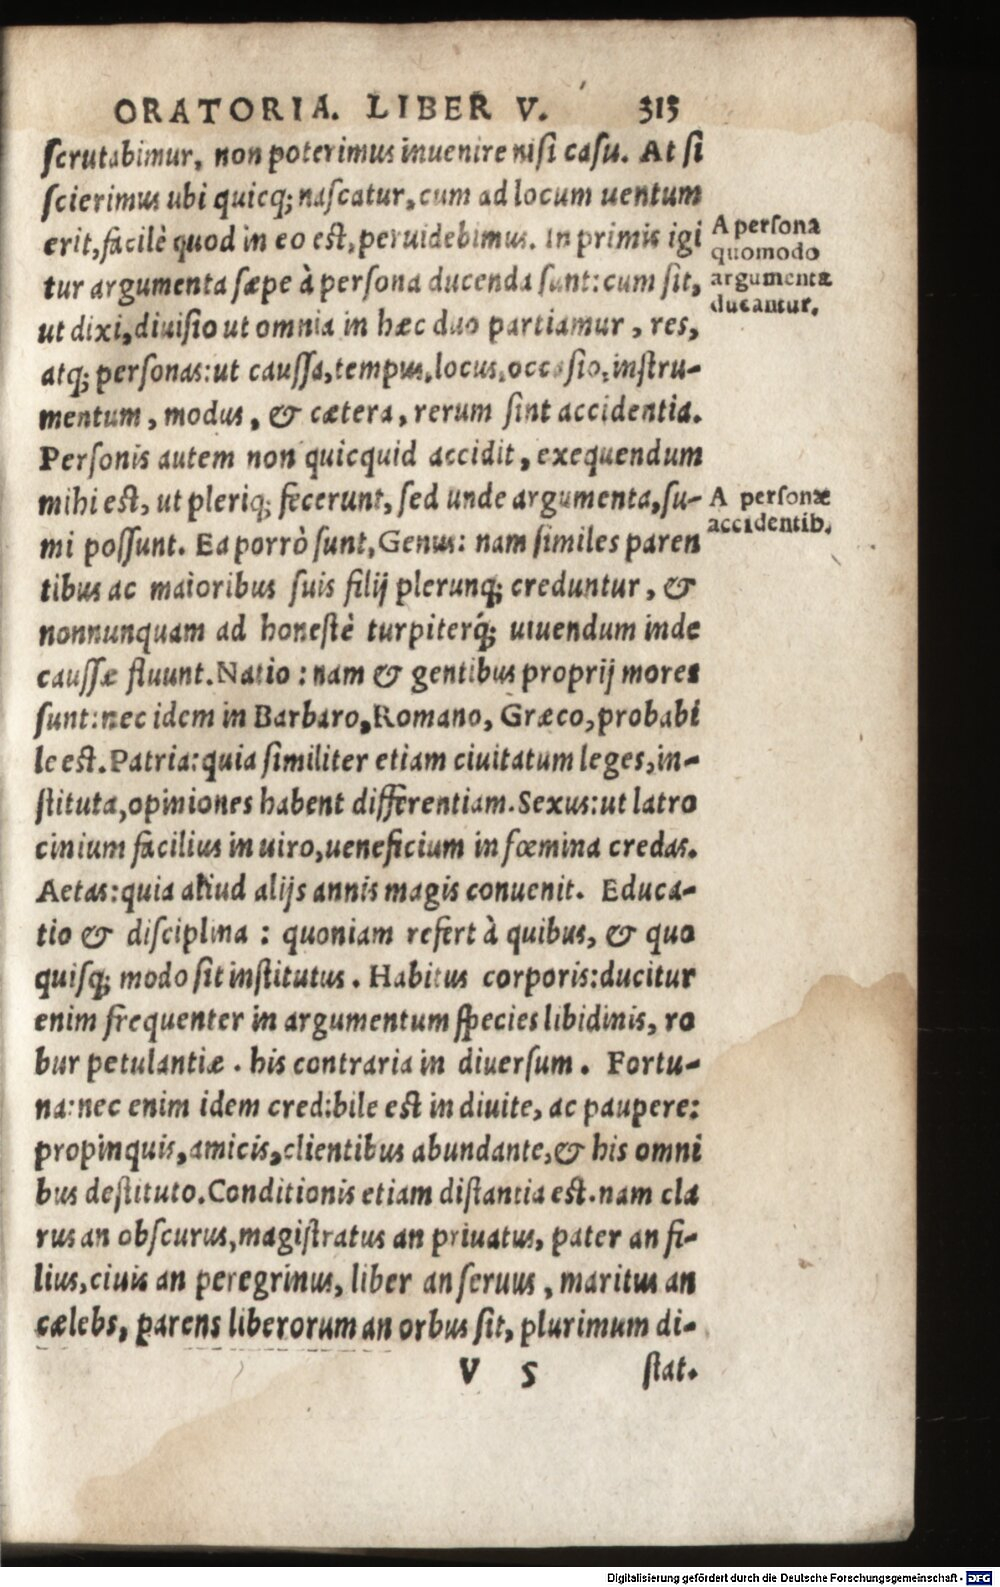 ORATORIA. LIBER V. 313
scrutabimur, non poterimus inuenire nisi casu. At si
scierimus ubi quicq; nascatur, cum ad locum uentum
erit, facilè quod in eo est, peruidebimus. In primis igi
tur argumenta sæpe à persona ducenda sunt: cum sit,
ut dixi, diuisio ut omnia in hæc duo partiamur, res,
atq; personas: ut caussa, tempus, locus, occasio, instru-
mentum, modus, & cætera, rerum sint accidentia.
Personis autem non quicquid accidit, exequendum
mihi est, ut pleriq; fecerunt, sed unde argumenta, su-
mi possunt. Ea porrò sunt, Genus: nam similes paren
tibus ac maioribus suis filij plerunq; creduntur, &
nonnunquam ad honestè turpiterq́; uiuendum inde
caussæ fluunt. Natio: nam & gentibus proprij mores
sunt: nec idem in Barbaro, Romano, Græco, probabi
le est. Patria: quia similiter etiam ciuitatum leges, in-
stituta, opiniones habent differentiam. Sexus: ut latro
cinium facilius in uiro, ueneficium in fœmina credas.
Aetas: quia aliud alijs annis magis conuenit. Educa-
tio & disciplina: quoniam refert à quibus, & quo
quisq; modo sit institutus. Habitus corporis: ducitur
enim frequenter in argumentum species libidinis, ro
bur petulantiæ. his contraria in diuersum. Fortu-
na: nec enim idem credibile est in diuite, ac paupere:
propinquis, amicis, clientibus abundante, & his omni
bus destituto. Conditionis etiam distantia est. nam cla
rus an obscurus, magistratus an priuatus, pater an fi-
lius, ciuis an peregrinus, liber an seruus, maritus an
cælebs, parens liberorum an orbus sit, plurimum di-
V 5 stat.
A persona
quomodo
argumenta
ducantur.
A personæ
accidentib.
Digitalisierung gefördert durch die Deutsche Forschungsgemeinschaft - DFG